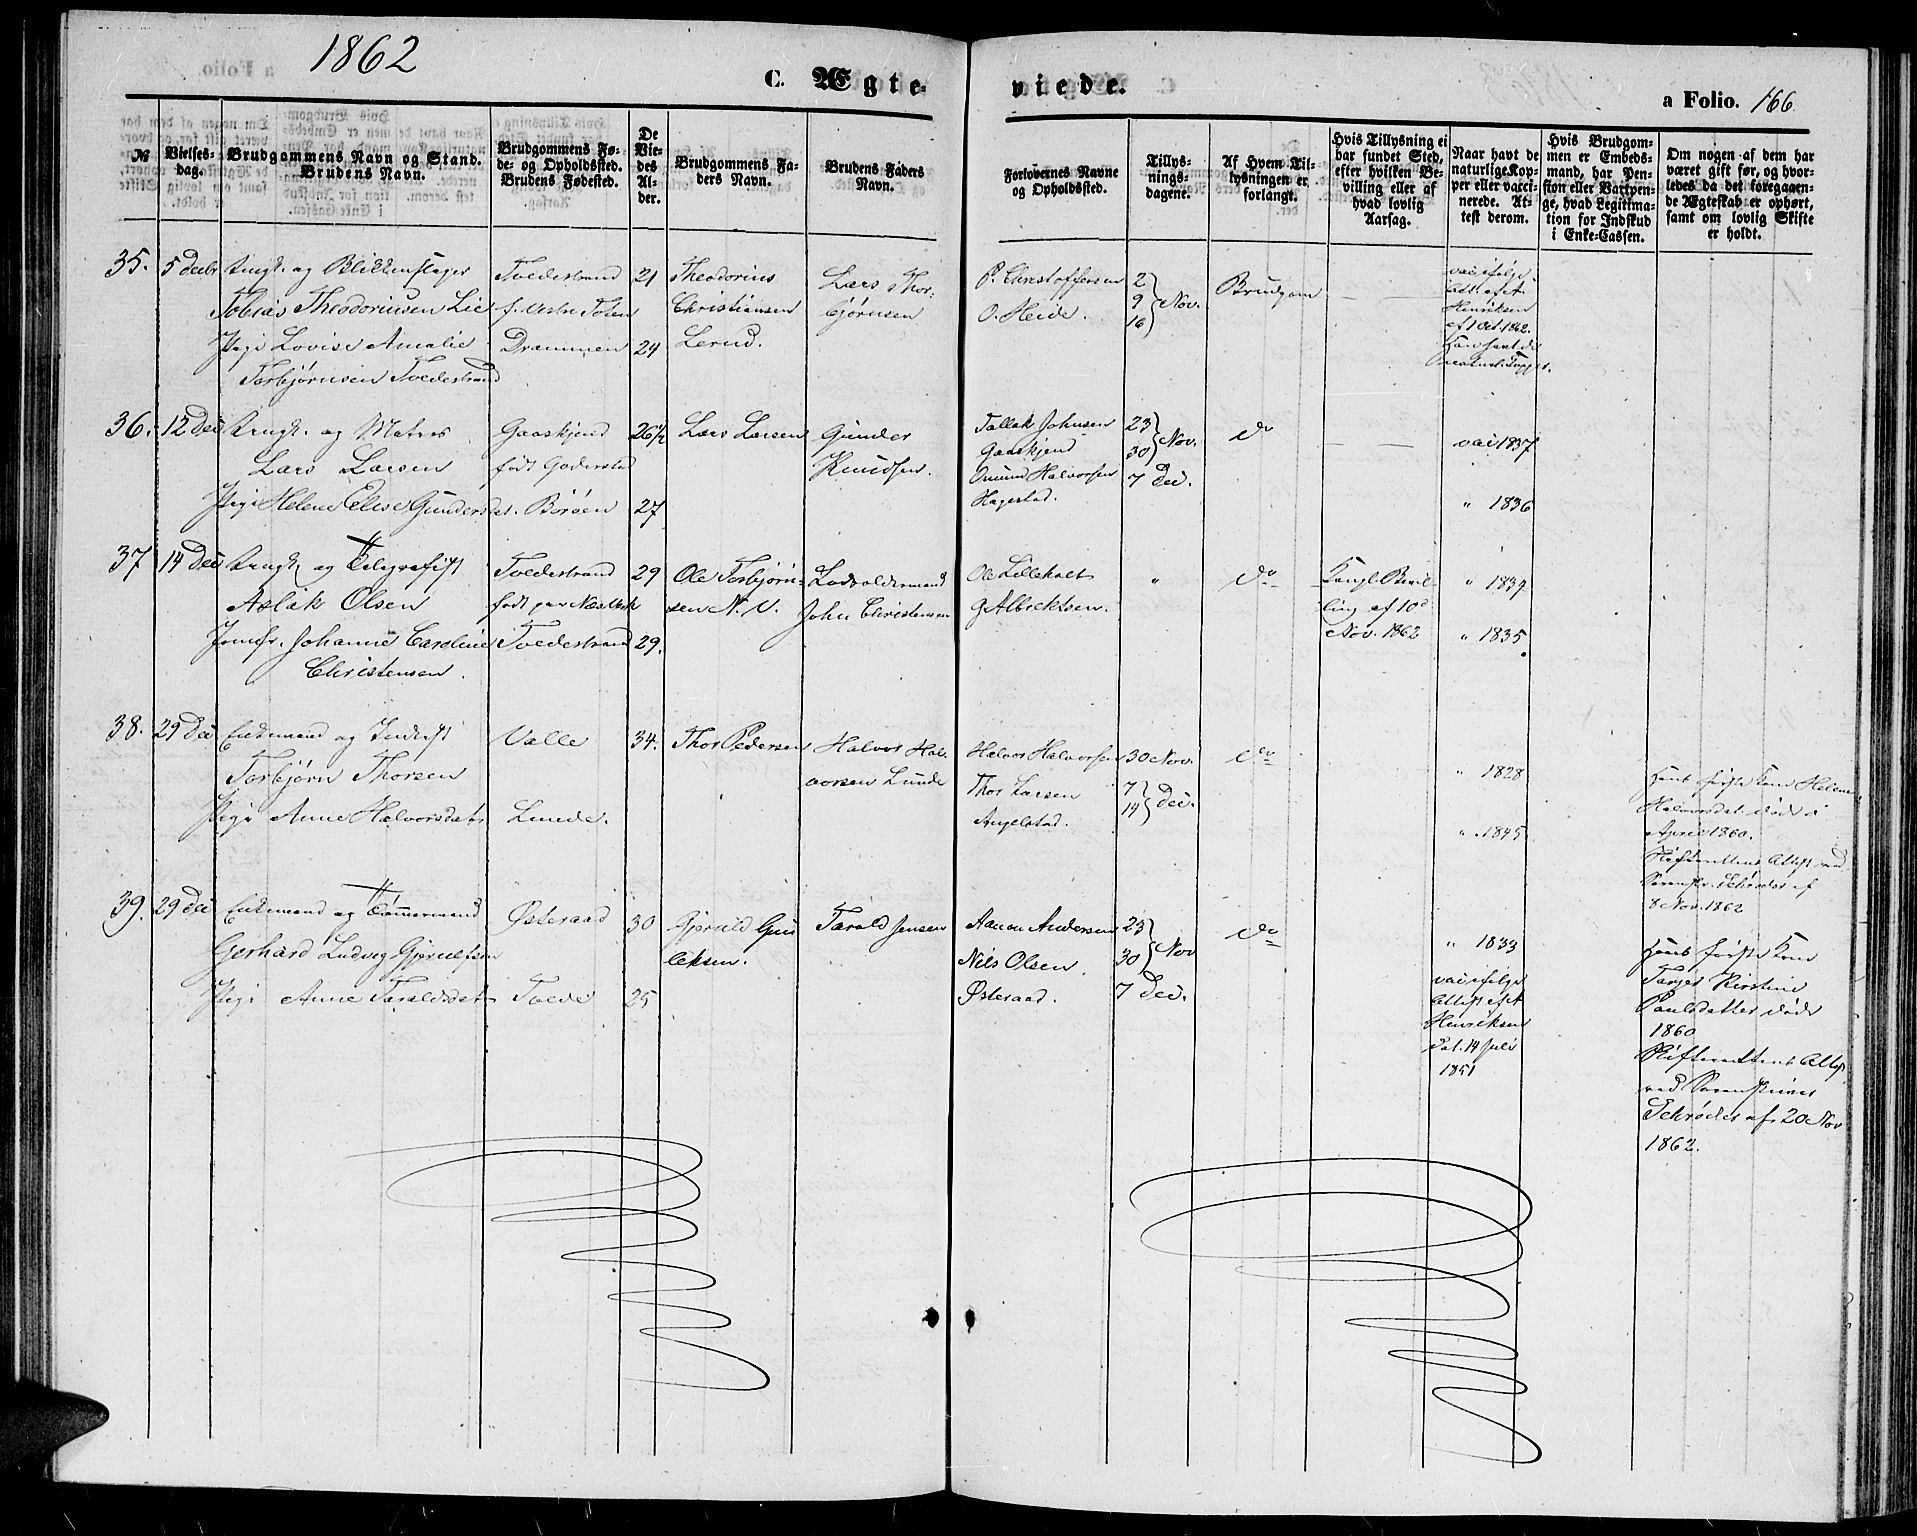 1862
C. Ægte-
viede.
a Folio. 166.
№
Vielses-
dag.
Brudgommens Navn og Stand.
Brudens Navn.
Brudgommens Fø-
de- og Opholdssted.
Brudens Fødested.
De
Vie-
des
Al-
der.
Brudgommens Fa-
ders Navn.
Brudens Faders
Navn.
Forlovernes Navne
og Opholdssted.
Tillys-
nings-
dagene.
Af Hvem Til-
lysningen er
forlangt.
Hvis Tillysning ei
har fundet Sted,
efter hvilken Be-
villing eller af
hvad lovlig
Aarsag.
Naar havt de
naturlige Kop-
per eller vacci-
nerede. At-
test derom.
Hvis Brudgom-
men er Embeds-
mand, har Pen-
sion eller Vartpen-
ge, hvad Legitima-
tion for Indskud
i Enke-Cassen.
Om nogen af dem har
været gift før, og hvor-
ledes da det foregaaen-
de Ægteskab er ophørt,
samt om lovlig Skifte
er holdt.
35. 5 Decbr Ungk. og Blikkenslager
Tobias Theodoriusen Lie
Pige Lovise Amalie
Torbjørnsen Tvedestrand
Tvedestrand
f. Vestre Toten
Drammen
21
24
Theodorius
Christiansen
Lerud.
Lars Thor-
bjørnsen
P. Christoffersen
O. Heide.
2
9
16
Nov.
Brudgom
vac. ifølge
Att. af A.
Henriksen
af 1 Oct. 1862.
36. 12 Dec Ungk. og Matros
Lars Larsen
Pige Helene Elise Gundersdat.
Gaaskjend
født Gjerrestad
Borøen
26½
27
Lars Larsen
Gunder
Knudsen.
Tallak Johnsen
Gaaskjend
Omund Halvorsen
Hagestad.
23
30
Nov.
7 Dec.
do
vac 1837
" 1836
37 14 Dec Ungk. og Telegrafist
Aslak Olsen
Jomfr. Johanne Caroline
Christensen.
Tvedestrand
født paa Næskilen
Tvedestrand
29
29.
Ole Torbjørn-
sen N. V.
Lodsoldermand
John Christensen
Ole Lilleholt
G Albrektsen.
"
do
Kongl. Bevil-
ling af 10d
Nov. 1862
" 1837
" 1835
38. 29 Dec Enkemand og Inderst
Torbjørn Thorsen
Pige Anne Halvorsdat.
Valle
Lunde.
34.
Thor Pedersen
Halvor Hal-
vorsen Lunde
Halvor Halvorsen
Thor Larsen
Angelstad.
30 Nov.
7
14
Dec.
do
" 1828
" 1845
Hans første Kone Helene
Halvorsdat. døde i
April 1860.
Skifterettens Attest ved
Sorenskr. Schrøder af
8 Nov. 1862
39. 29 Dec Enkemand og Tømmermand
Gerhard Ludvig Gjerulfsen
Pige Anne Taraldsdat.
Østeraad
Tvede
30
25
Gjeruld Gun-
leksen.
Tarald Jensen
Aanon Andersen
Nils Olsen
Østeraad.
23
30
Nov
7 Dec.
do
" 1833
vac. ifølge
Attest af A
Henriksen
dat. 14 Juli
1851
Hans første Kone
Tarjer Kirstine
Paulsdatter døde
1860
Skifterettens Attest
ved Sorenskriver
Schrøder af 20 Nov
1862.